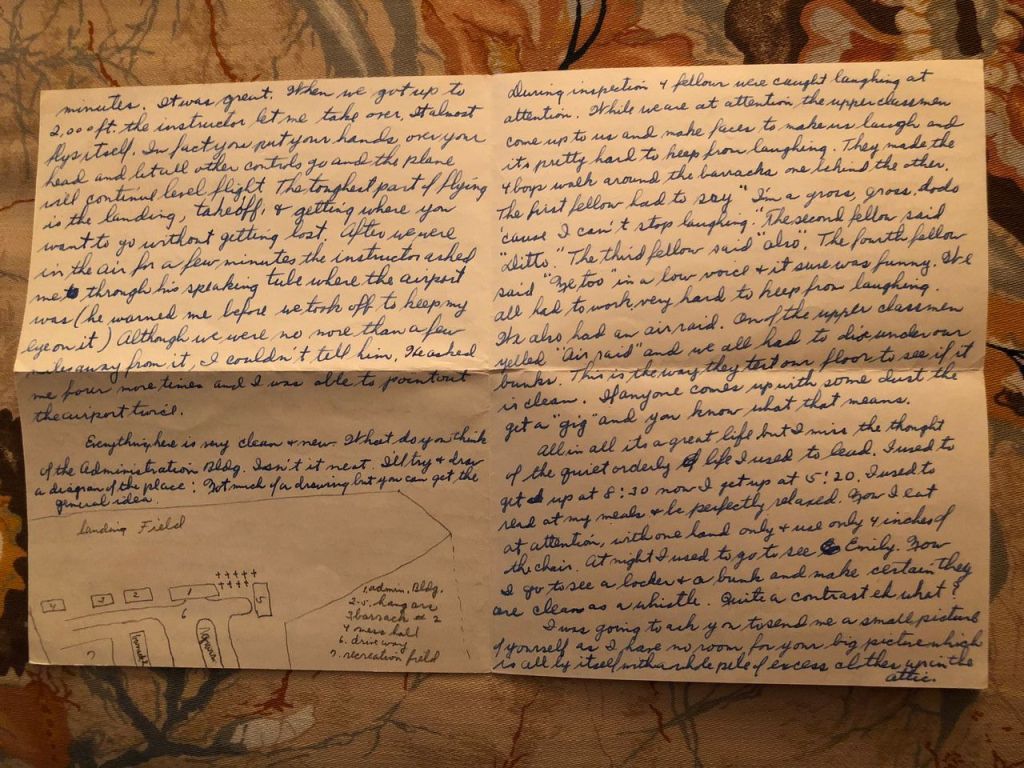 minutes. It was great. When we got up to
2,000 ft. the instructor let me take over. It almost
flys itself. In fact you put your hands over your
head and let all other controls go and the plane
will continue level flight. The toughest part of flying
is the landing, takeoff, & getting where you
want to go without getting lost. After we were
in the air for a few minutes the instructor asked
me through his speaking tube where the airport
was (he warned me before we took off to keep my
eye on it) Although we were no more than a few
miles away from it, I couldn't tell him. He asked
me four more times and I was able to point out
the airport twice.
Everything here is very clean & new. What do you think
of the Administration Bldg. Isn't it neat. I'll try & draw
a diagram of the place: Not much of a drawing but you can get the
general idea.
Landing Field
4 3 2 1 5
6
7
1. admin. Bldg.
2-5. hangars
3 barrack 1 & 2
4 mess hall
6. driveway
7. recreation field
During inspection 4 fellows were caught laughing at
attention. While we are at attention, the upper classmen
come up to us and make faces to make us laugh and
its pretty hard to keep from laughing. They made the
4 boys walk around the barracks one behind the other.
The first fellow had to say "I'm a gross, gross, dodo
'cause I can't stop laughing." The second fellow said
"Ditto." The third fellow said "also". The fourth fellow
said "Me too" in a low voice & it sure was funny. We
all had to work very hard to keep from laughing.
We also had an air raid. On of the upper classmen
yelled "Air raid" and we all had to dive under our
bunks. This is the way they test our floor to see if it
is clean. If anyone comes up with some dust the
get a "gig" and you know what that means.
All in all its a great life but I miss the thought
of the quiet orderly life I used to lead. I used to
get up at 8:30 now I get up at 5:20. I used to
read at my meals & be perfectly relaxed. Now I eat
at attention, with one hand only & use only 4 inches of
the chair. At night I used to go to see Emily. Now
I go to see a locker & a bunk and make certain they
are clean as a whistle. Quite a contrast eh what?
I was going to ask you to send me a small picture
of yourself as I have no room for your big picture which
is all by itself with a whole pile of excess clothes up in the
attic.